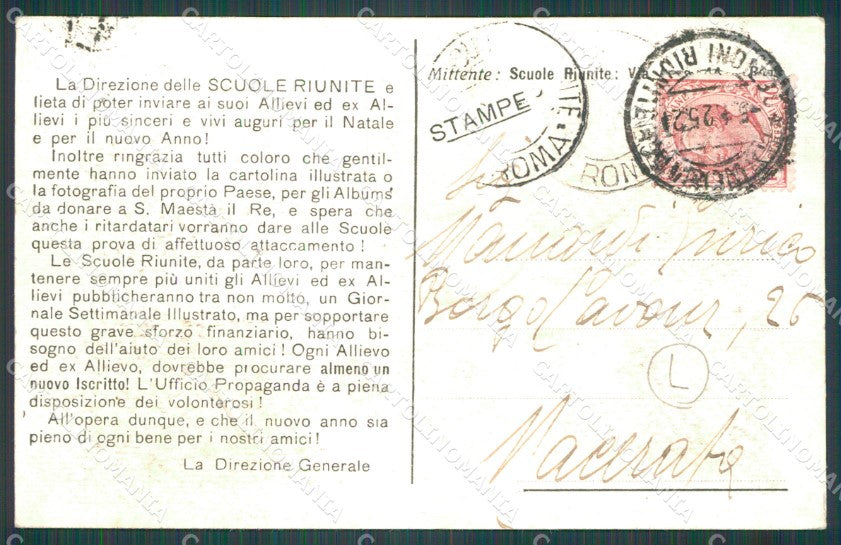 La Direzione delle SCUOLE RIUNITE e
lieta di poter inviare ai suoi Allievi ed ex Al-
lievi i più sinceri e vivi auguri per il Natale
e per il nuovo Anno!
Inoltre ringrazia tutti coloro che gentil-
mente hanno inviato la cartolina illustrata o
la fotografia del proprio Paese, per gli Albums
da donare a S. Maestà il Re, e spera che
anche i ritardatari vorranno dare alle Scuole
questa prova di affettuoso attaccamento !
Le Scuole Riunite, da parte loro, per man-
tenere sempre più uniti gli Allievi ed ex Al-
lievi pubblicheranno tra non molto, un Gior-
nale Settimanale Illustrato, ma per sopportare
questo grave sforzo finanziario, hanno bi-
sogno dell'aiuto dei loro amici ! Ogni Allievo
ed ex Allievo, dovrebbe procurare almeno un
nuovo Iscritto! L'Ufficio Propaganda è a piena
disposizione dei volonterosi !
All'opera dunque, e che il nuovo anno sia
pieno di ogni bene per i nostri amici !
La Direzione Generale
Mittente: Scuole Riunite: Via
STAMPE
ROMA
ROM
Borgo Cavour, 26
L
Macerata
CARTOLINOMANIA